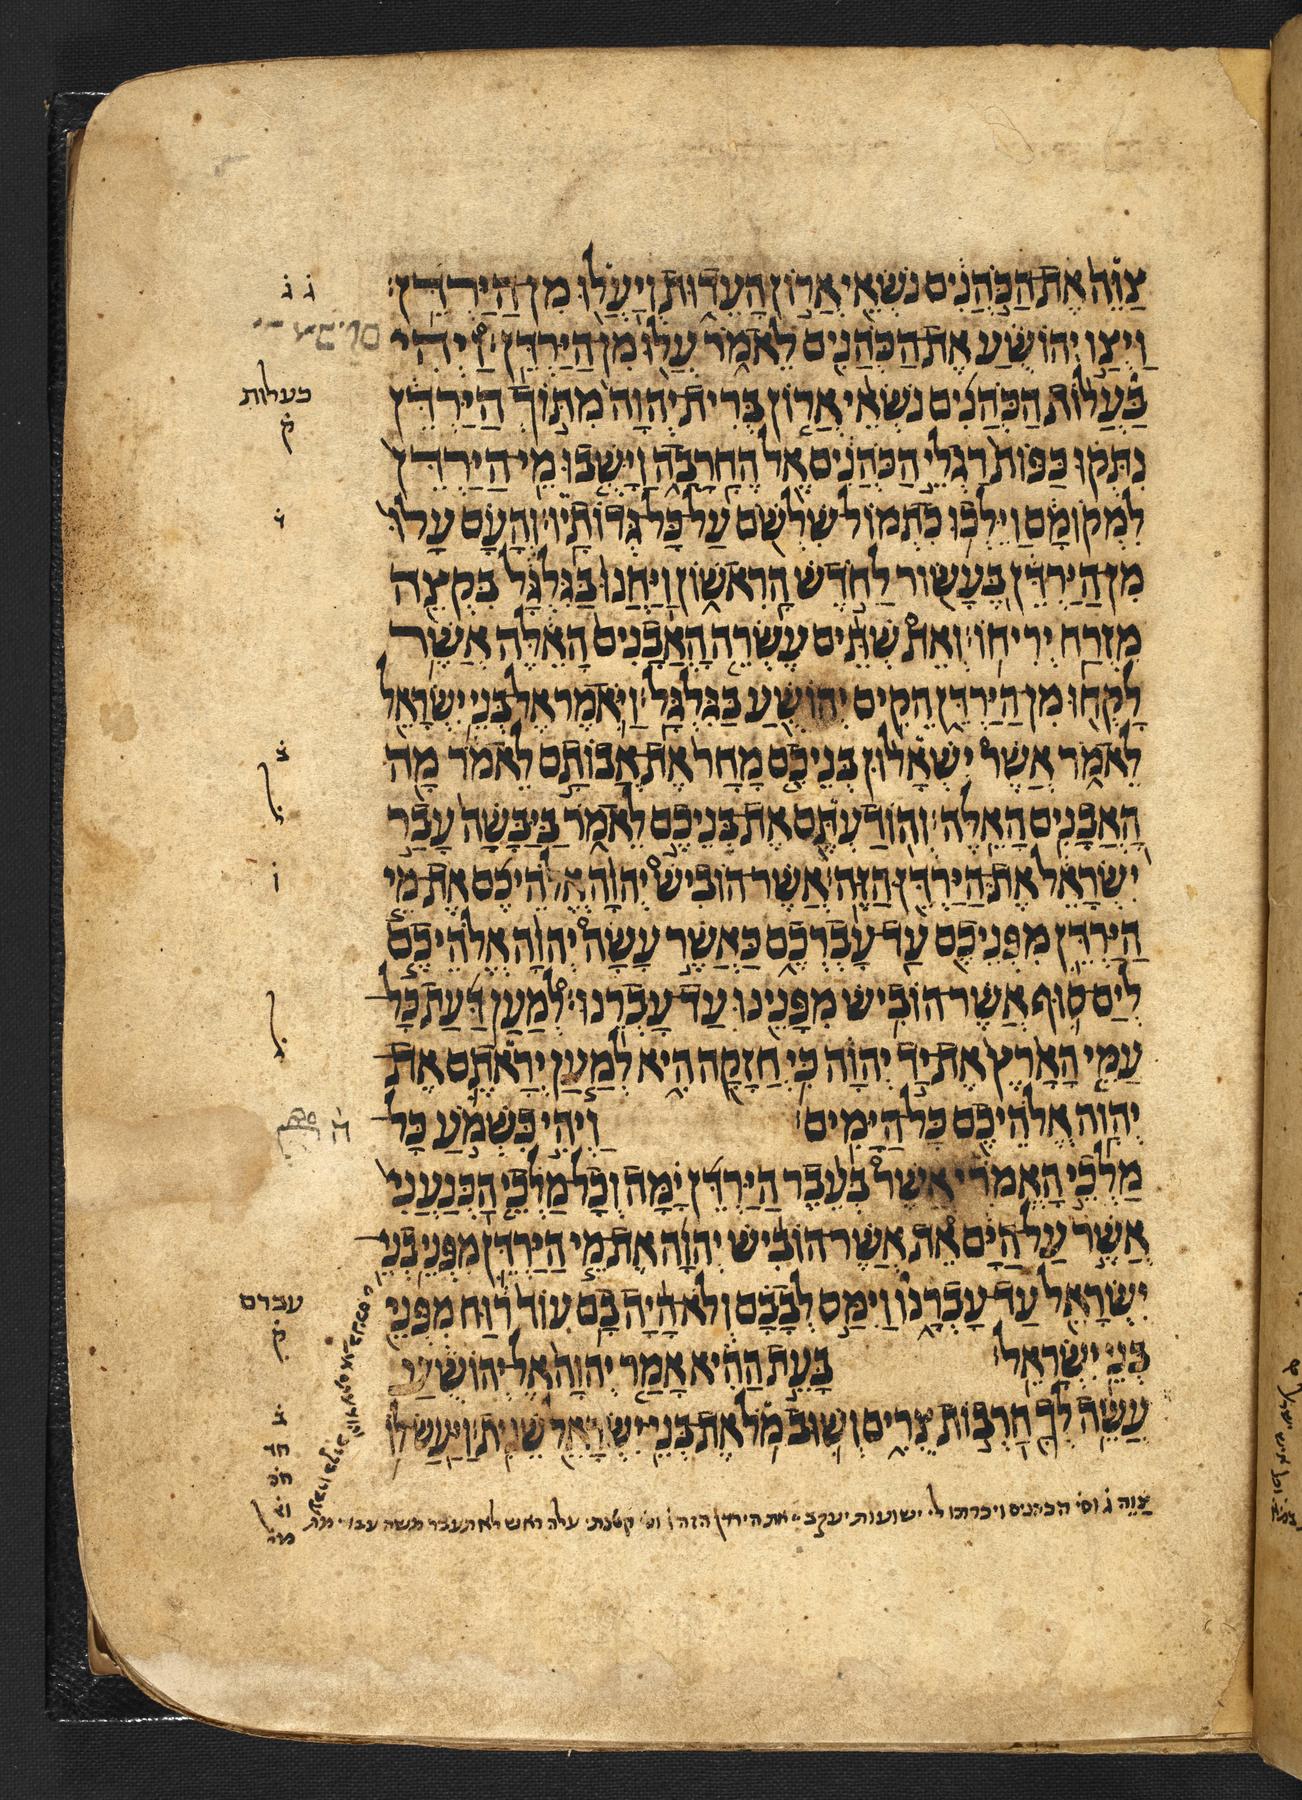 צוה את הכהנים נשאי ארון העדות ויעלו מן הירדן׃
ויצו יהושע את הכהנים לאמר עלו מן הירדן׃ ויהי
בעלות הכהנים נשאי ארון ברית יהוה מתוך הירדן
נתקו כפות רגלי הכהנים אל החרבה וישבו מי הירדן
למקומם וילכו כתמול שלשום על כל גדותיו׃ והעם עלו
מן הירדן בעשור לחדש הראשון ויחנו בגלגל בקצה
מזרח יריחו׃ ואת שתים עשרה האבנים האלה אשר
לקחו מן הירדן הקים יהושע בגלגל׃ ויאמר אל בני ישראל
לאמר אשר ישאלון בניכם מחר את אבותם לאמר מה
האבנים האלה׃ והודעתם את בניכם לאמר ביבשה עבר
ישראל את הירדן הזה׃ אשר הוביש יהוה אלהיכם את מי
הירדן מפניכם עד עברכם כאשר עשה יהוה אלהיכם
לים סוף אשר הוביש מפנינו עד עברנו׃ למען דעת כל
עמי הארץ את יד יהוה כי חזקה היא למען יראתם את
יהוה אלהיכם כל הימים׃ ויהי כשמע כל
מלכי האמרי אשר בעבר הירדן ימה וכל מלכי הכנעני
אשר על הים את אשר הוביש יהוה את מי הירדן מפני בני
ישראל עד עברנו וימס לבבם ולא היה בם עוד רוח מפני
בני ישראל׃ בעת ההיא אמר יהוה אל יהושע
עשה לך חרבות צרים ושוב מל את בני ישראל שנית׃ ויעש לו
ג ג
כעלות
ק
ו
ב
ל
ו
ל
ה
עברם
ק
ב
חד
צוה ג וסי הכהנים ויכרתו לי ישועות יעקב את הירדן הזה ו וסי קטנתי עלה ראש לא תעבר משה עבדי מת